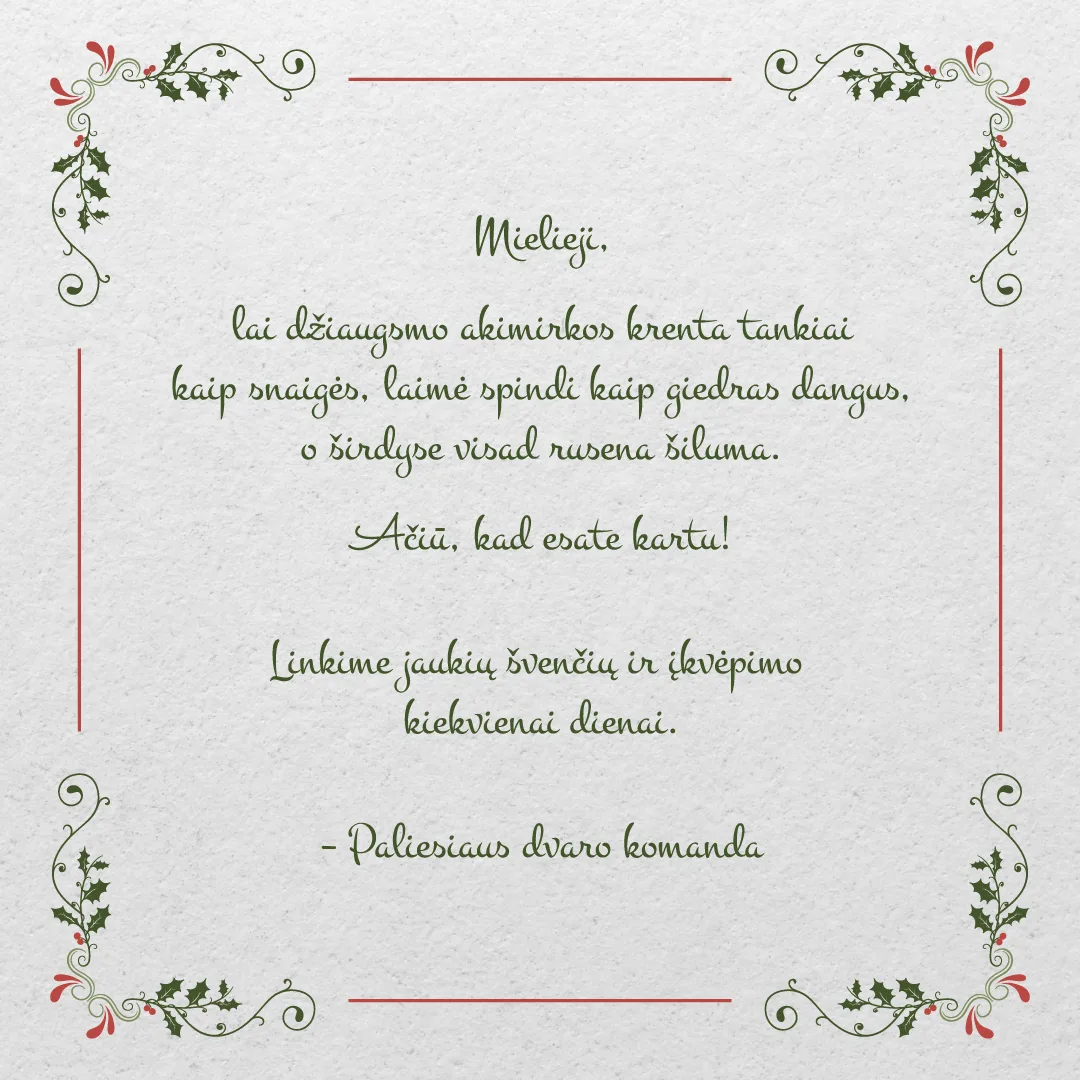 Mielieji,
lai džiaugsmo akimirkos krenta tankiai
kaip snaigės, laimė spindi kaip giedras dangus,
o širdyse visad rusena šiluma.
Ačiū, kad esate kartu!
Linkime jaukių švenčių ir įkvėpimo
kiekvienai dienai.
– Paliesiaus dvaro komanda